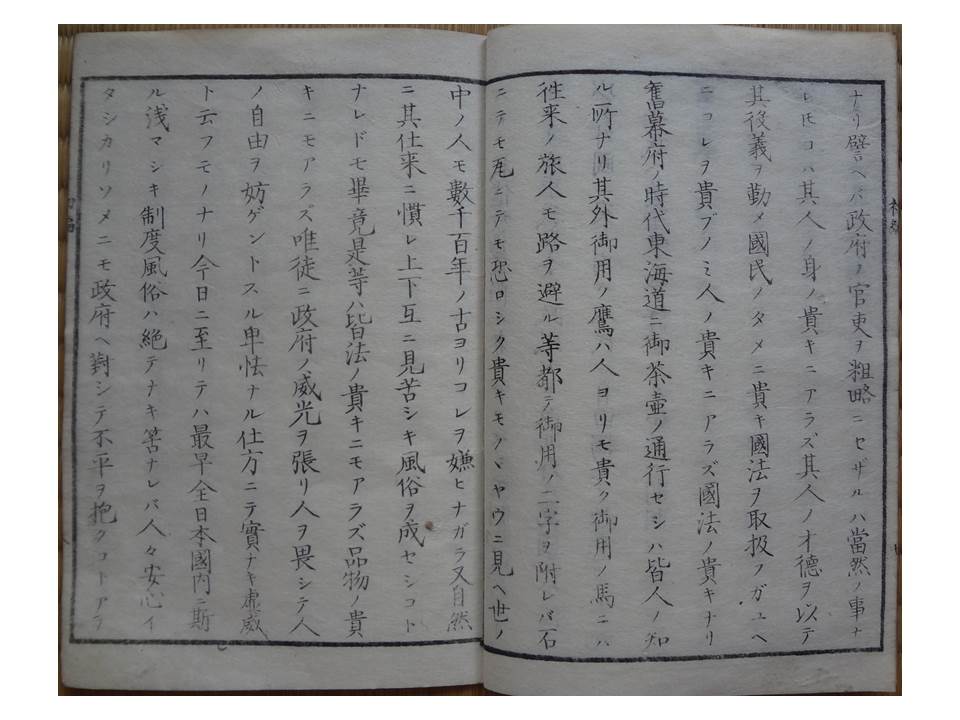 ナリ譬ヘバ政府ノ官吏ヲ粗略ニセザルハ當然ノ事ナ
レ𪜈コハ其人ノ身ノ貴キニアラズ其人ノ才德ヲ以テ
其役義ヲ勤メ國民ノタメニ貴キ國法ヲ取扱フガユヘ
ニコレヲ貴ブノミ人ノ貴キニアラズ國法ノ貴キナリ
舊幕府ノ時代東海道ニ御茶壷ノ通行セシハ皆人ノ知
ル所ナリ其外御用ノ鷹ハ人ヨリモ貴ク御用ノ馬ニハ
徃来ノ旅人モ路ヲ避ル等都テ御用ノ二字ヲ附レバ石
ニテモ瓦ニテモ恐ロシク貴キモノヽヤウニ見ヘ世ノ
中ノ人モ數千百年ノ古ヨリコレヲ嫌ヒナガラ又自然
ニ其仕来ニ慣レ上下互ニ見苦シキ風俗ヲ成セシコト
ナレドモ畢竟是等ハ皆法ノ貴キニモアラズ品物ノ貴
キニモアラズ唯徒ニ政府ノ威光ヲ張リ人ヲ畏シテ人
ノ自由ヲ妨ゲントスル卑怯ナル仕方ニテ實ナキ虚威
ト云フモノナリ今日ニ至リテハ最早全日本國內ニ斯
ル浅マシキ制度風俗ハ絶テナキ筈ナレバ人々安心イ
タシカリソメニモ政府ヘ對シテ不平ヲ抱クコトアラ